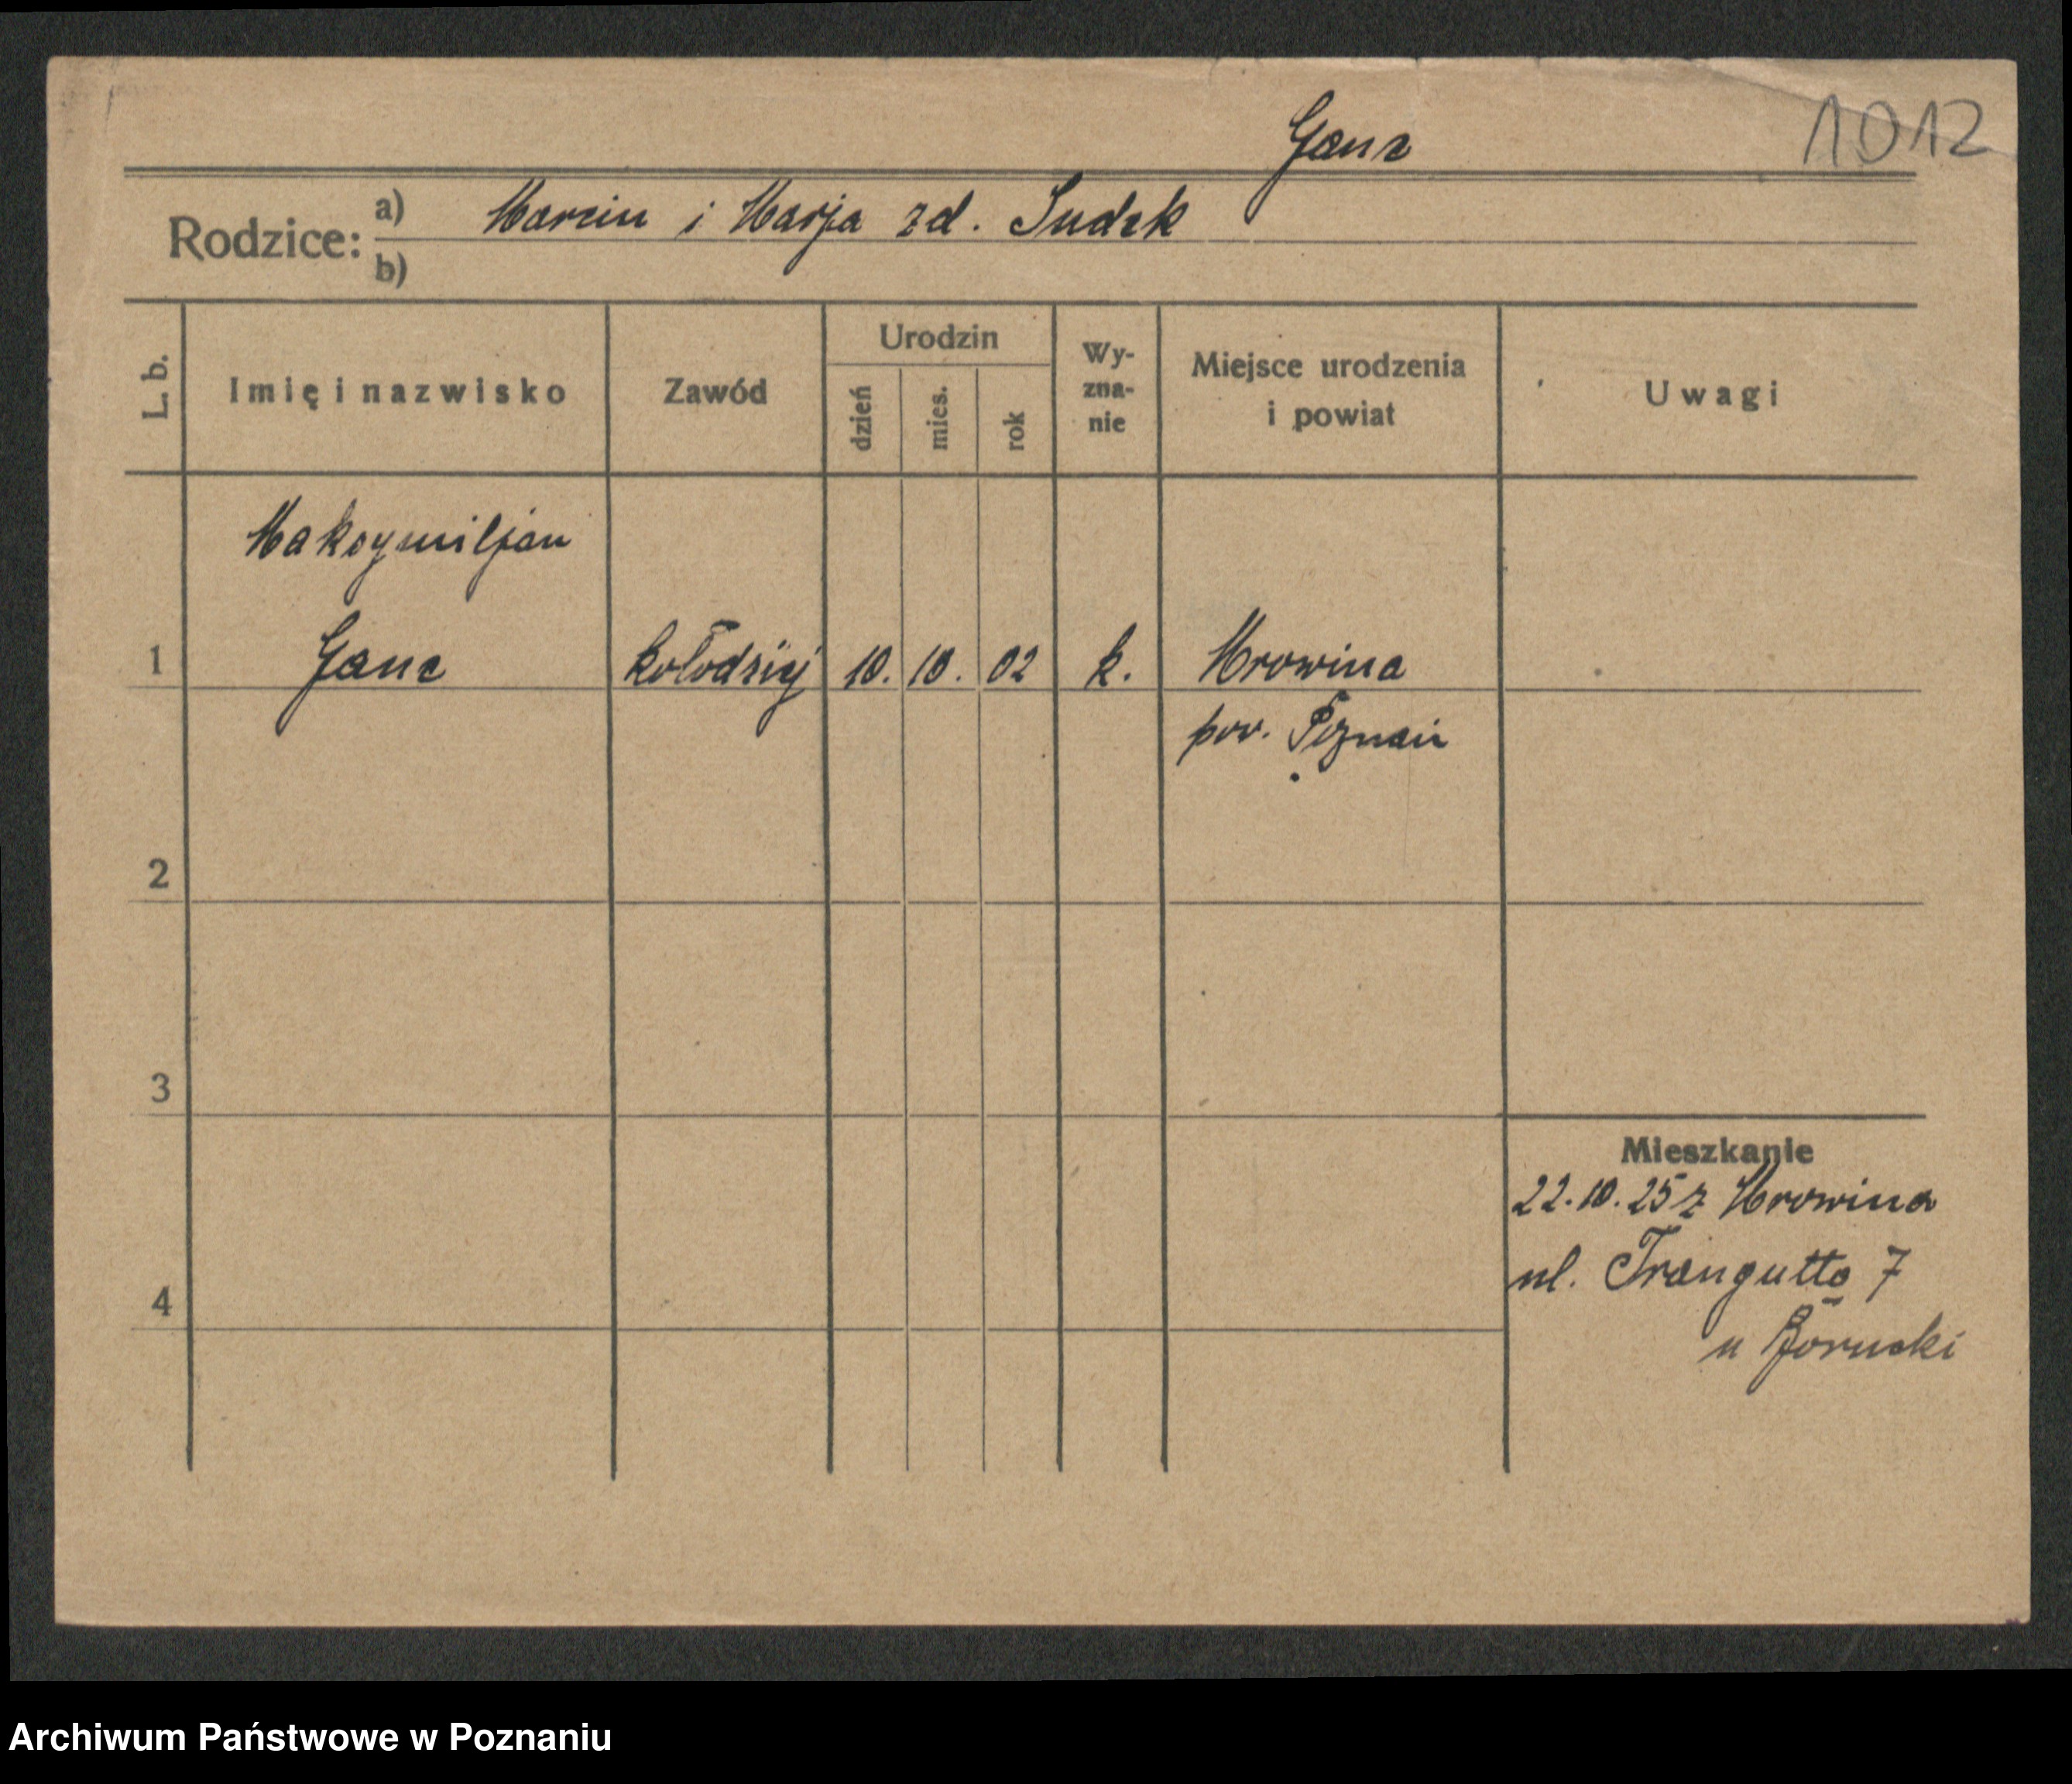 Ganz
1012
Rodzice: a) Marcin i Marja zd. Dudek
b)
L. b.
Imię i nazwisko
Zawód
Urodzin
dzień
mies.
rok
Wy-
zna-
nie
Miejsce urodzenia
i powiat
Uwagi
Maksymiljan
1 Ganc kołodziej 10. 10. 02 k. Mrowina
pow. Poznań
2
3
4
Mieszkanie
22.10.25 z Mrowina
ul. Traugutta 7
u
Archiwum Państwowe w Poznaniu